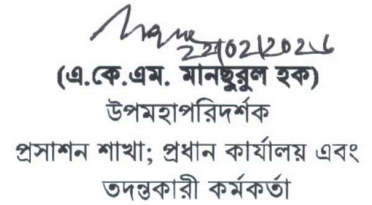 22/02/2026
(এ.কে.এম. মানছুরুল হক)
উপমহাপরিদর্শক
প্রসাশন শাখা; প্রধান কার্যালয় এবং
তদন্তকারী কর্মকর্তা